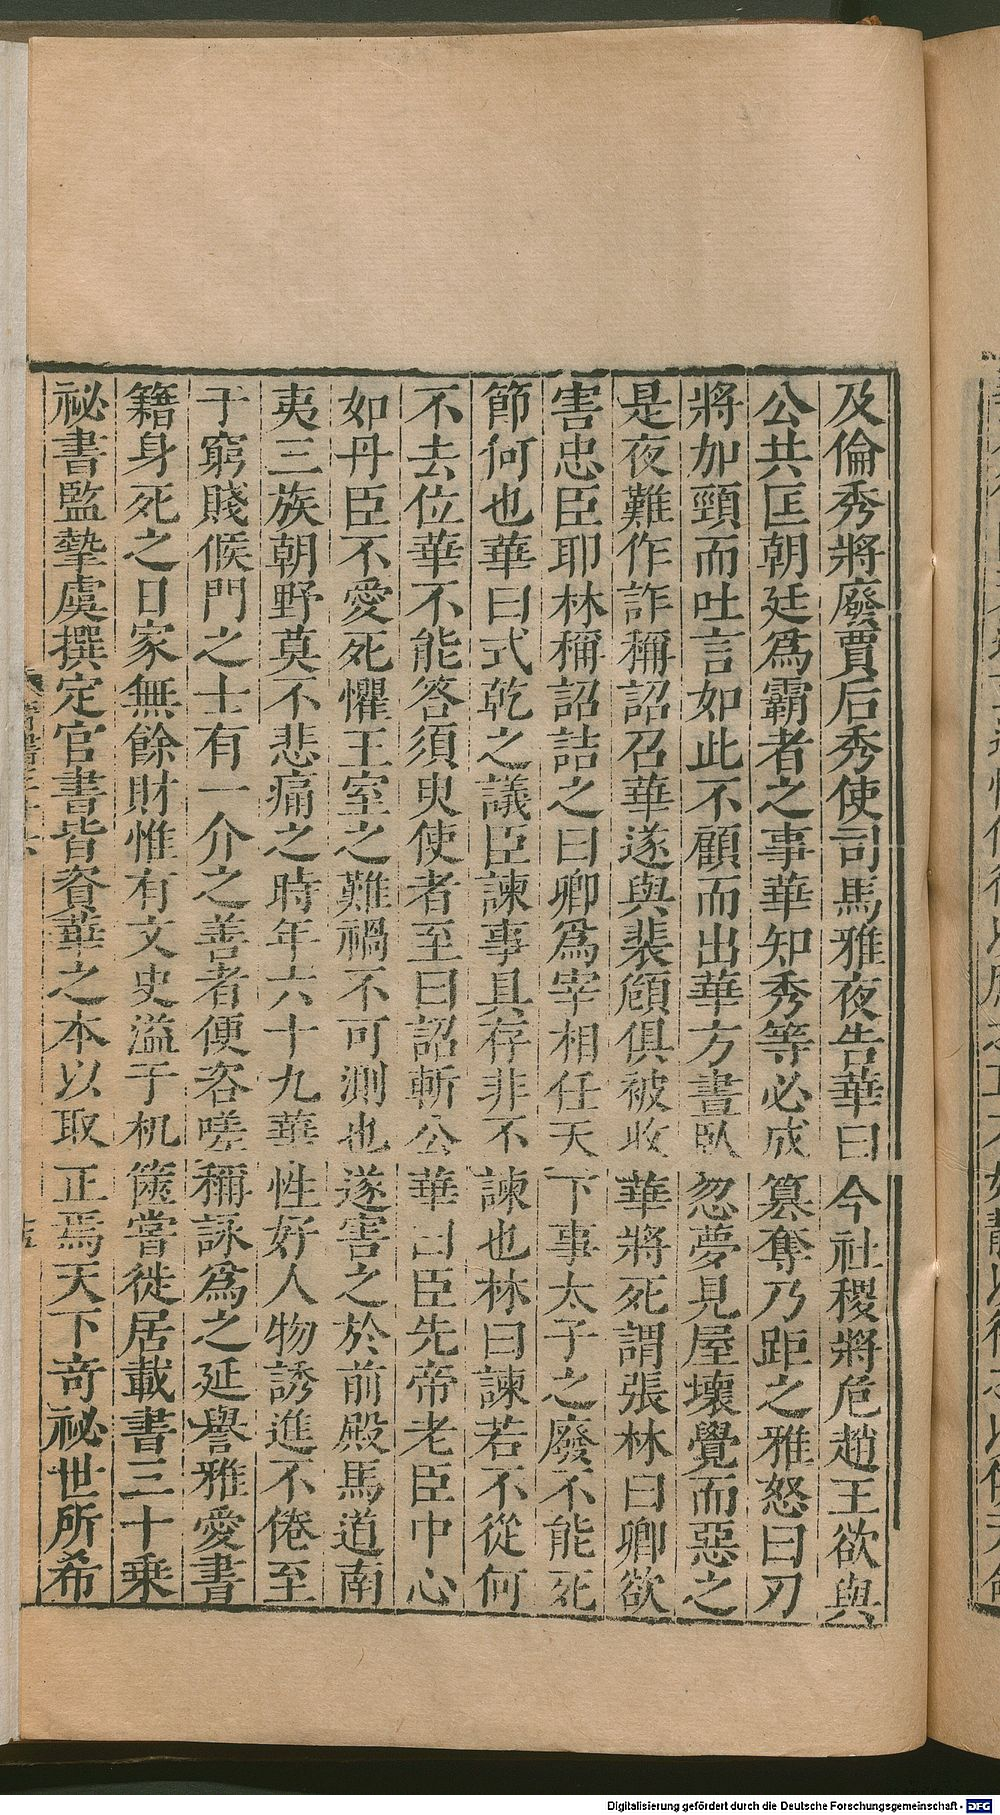 及倫秀將廢賈后秀使司馬雅夜告華曰今社稷將危趙王欲與
公共匡朝廷爲霸者之事華知秀等必成簒奪乃距之雅怒曰刃
將加頸而吐言如此不顧而出華方晝臥忽夢見屋壞覺而惡之
是夜難作詐稱詔召華遂與裴頠俱被收華將死謂張林曰卿欲
害忠臣耶林稱詔詰之曰卿爲宰相任天下事太子之廢不能死
節何也華曰式乾之議臣諫事具存非不諫也林曰諫若不從何
不去位華不能答須臾使者至曰詔斬公華曰臣先帝老臣中心
如丹臣不愛死懼王室之難禍不可測也遂害之於前殿馬道南
夷三族朝野莫不悲痛之時年六十九華性好人物誘進不倦至
于窮賤候門之士有一介之善者便咨嗟稱詠爲之延譽雅愛書
籍身死之日家無餘財惟有文史溢于机篋嘗徙居載書三十乗
祕書監摯虞撰定官書皆資華之本以取正焉天下竒祕世所希
Digitalisierung gefördert durch die Deutsche Forschungsgemeinschaft - DFG